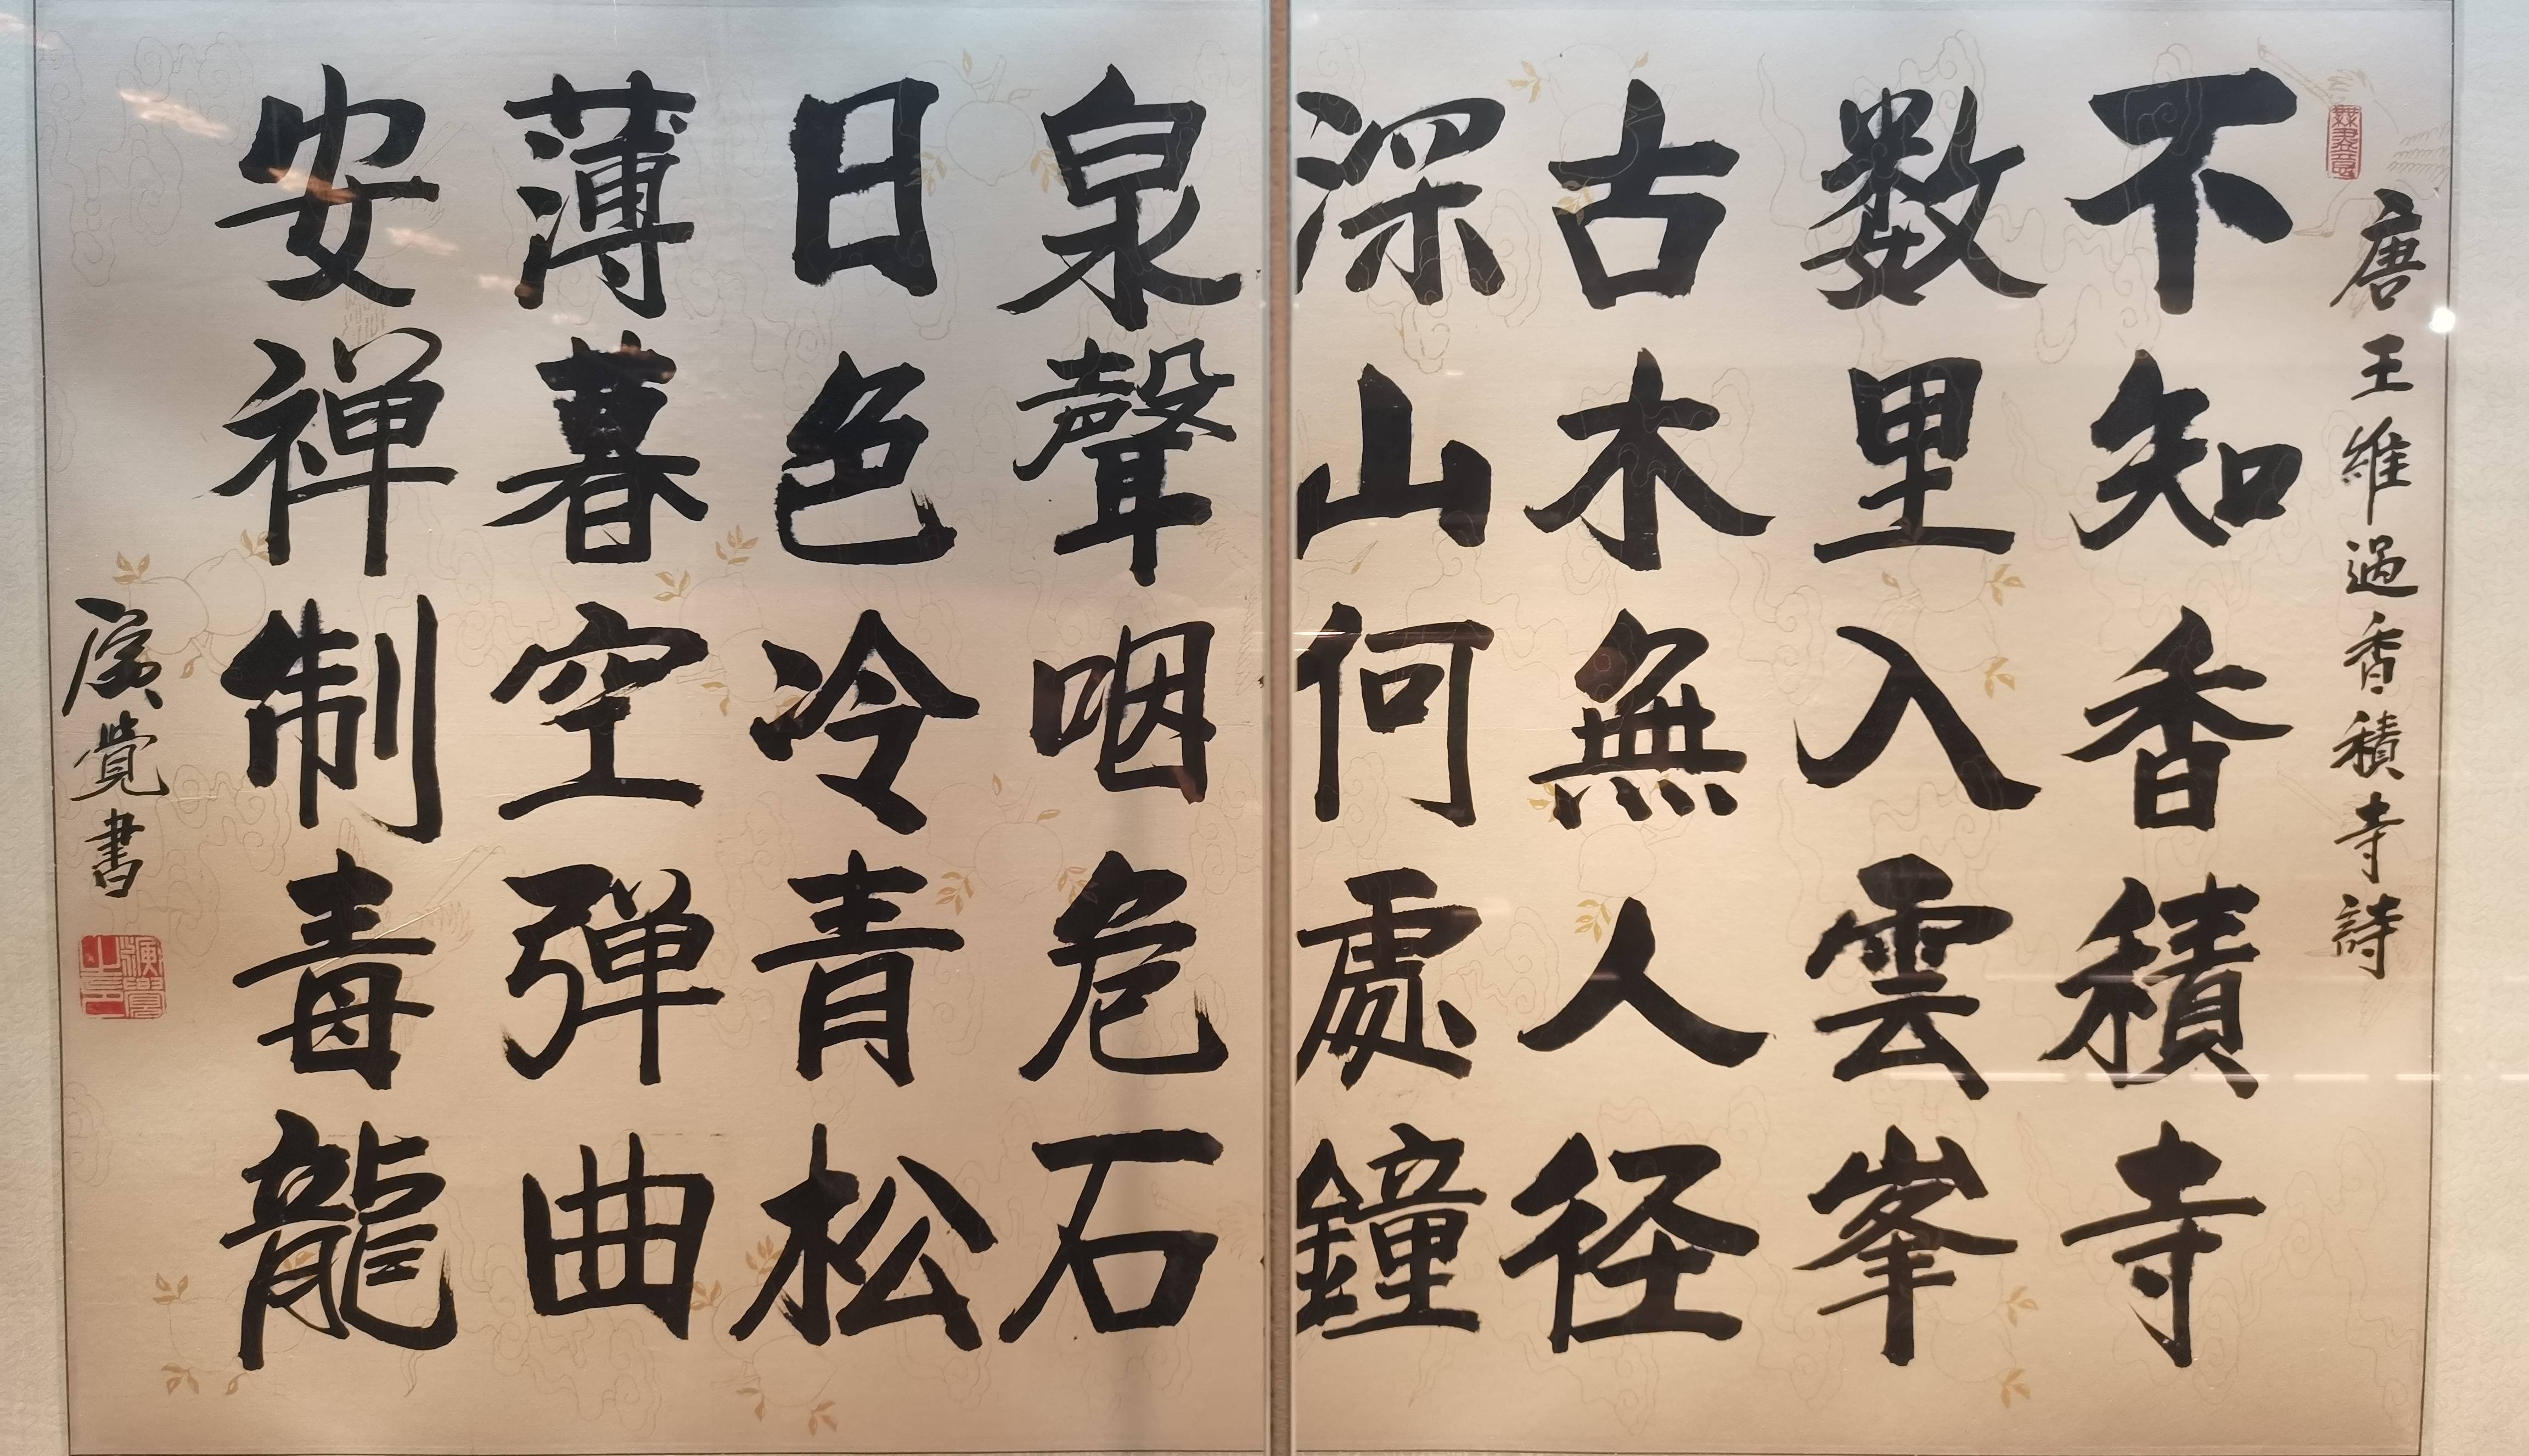 無盡意
唐王維過香積寺詩
不知香積寺
數里入雲峯
古木無人径
深山何處鐘
泉聲咽危石
日色冷青松
薄暮空弹曲
安禅制毒龍
演覺書
演覺之印